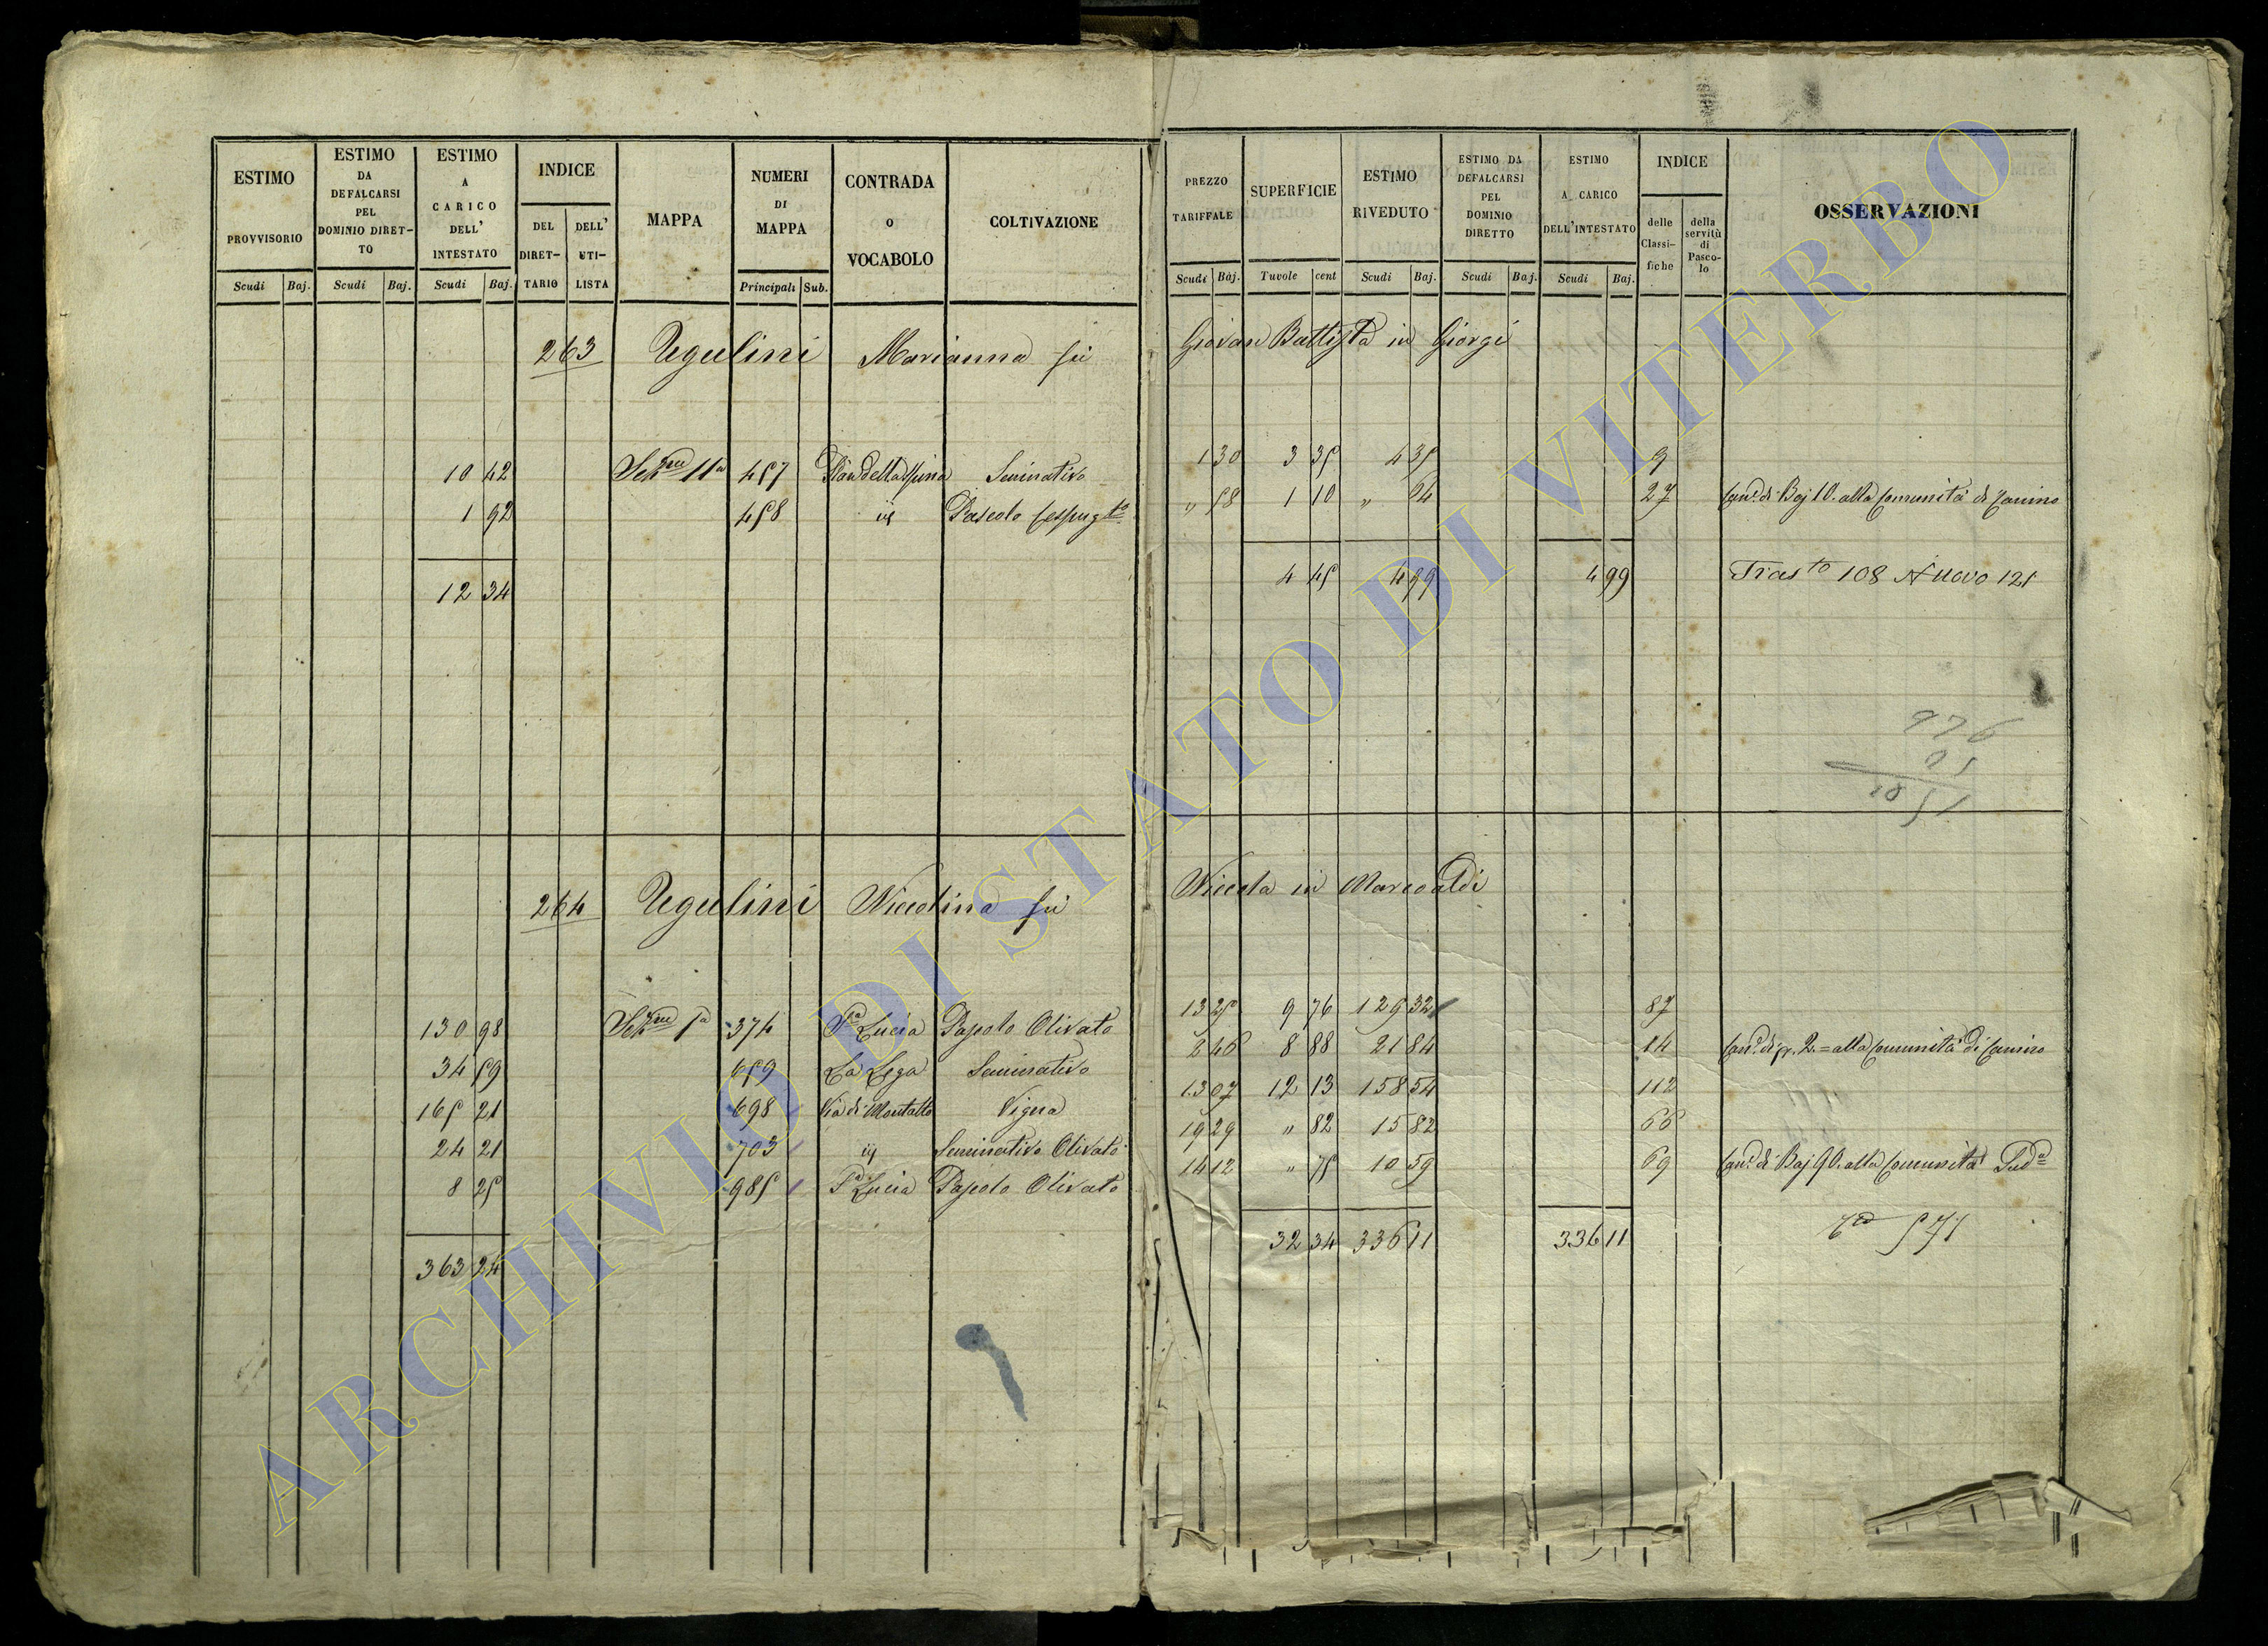 ESTIMO PROVVISORIO
Scudi Baj.
ESTIMO DA DEFALCARSI PEL DOMINIO DIRETTO
Scudi Baj.
ESTIMO A CARICO DELL' INTESTATO
Scudi Baj.
INDICE
DEL DIRETTARIO
DELL' UTILISTA
MAPPA
NUMERI DI MAPPA
Principali Sub.
CONTRADA O VOCABOLO
COLTIVAZIONE
PREZZO TARIFFALE
Scudi Baj.
SUPERFICIE
Tavole cent
ESTIMO RIVEDUTO
Scudi Baj.
ESTIMO DA DEFALCARSI PEL DOMINIO DIRETTO
Scudi Baj.
ESTIMO A CARICO DELL'INTESTATO
Scudi Baj.
INDICE
delle Classifiche
della servitù di Pascolo
OSSERVAZIONI
263 Ugulini Marianna fu Giovan Battista in Giorgi
10 42 Sezne 11a 457 Pian della Spina Seminativo 1 30 3 35 4 35 9
1 92 458 id Pascolo Cespugto „ 58 1 10 „ 64 27 Cane di Baj 10. alla Comunità di Canino
12 34 4 45 4 99 4 99 Trasto 108 Nuovo 121
976
05
264 Ugulini Niccolina fu Niccola in Marcoaldi
130 98 Sezne 1a 374 Sa Lucia Pascolo Olivato 13 25 9 76 129 32 87
34 59 659 La Lega Seminativo 2 46 8 88 21 84 14 Cane di 2.= alla Comunità di Canino
165 21 698 Via di Montalto Vigna 13 07 12 13 158 54 112
24 21 703 id Seminativo Olivato 19 29 „ 82 15 82 66
8 25 985 Sa Lucia Pascolo Olivato 14 12 „ 75 10 59 69 Cane di Baj 90. alla Comunità Suda
363 24 32 34 336 11 336 11
ARCHIVIO DI STATO DI VITERBO